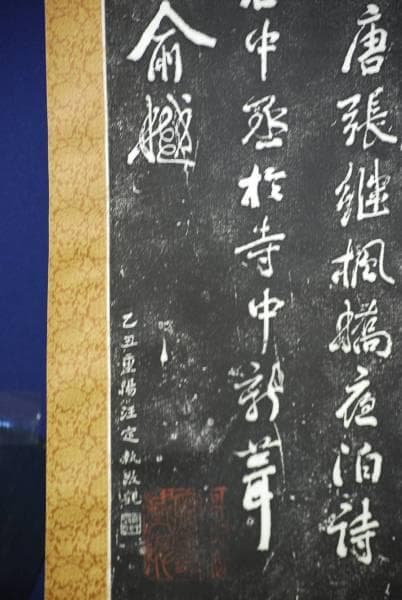 唐張継楓橋夜泊詩
中丞於寺中新葺
俞樾
乙丑重陽汪定執敬觀